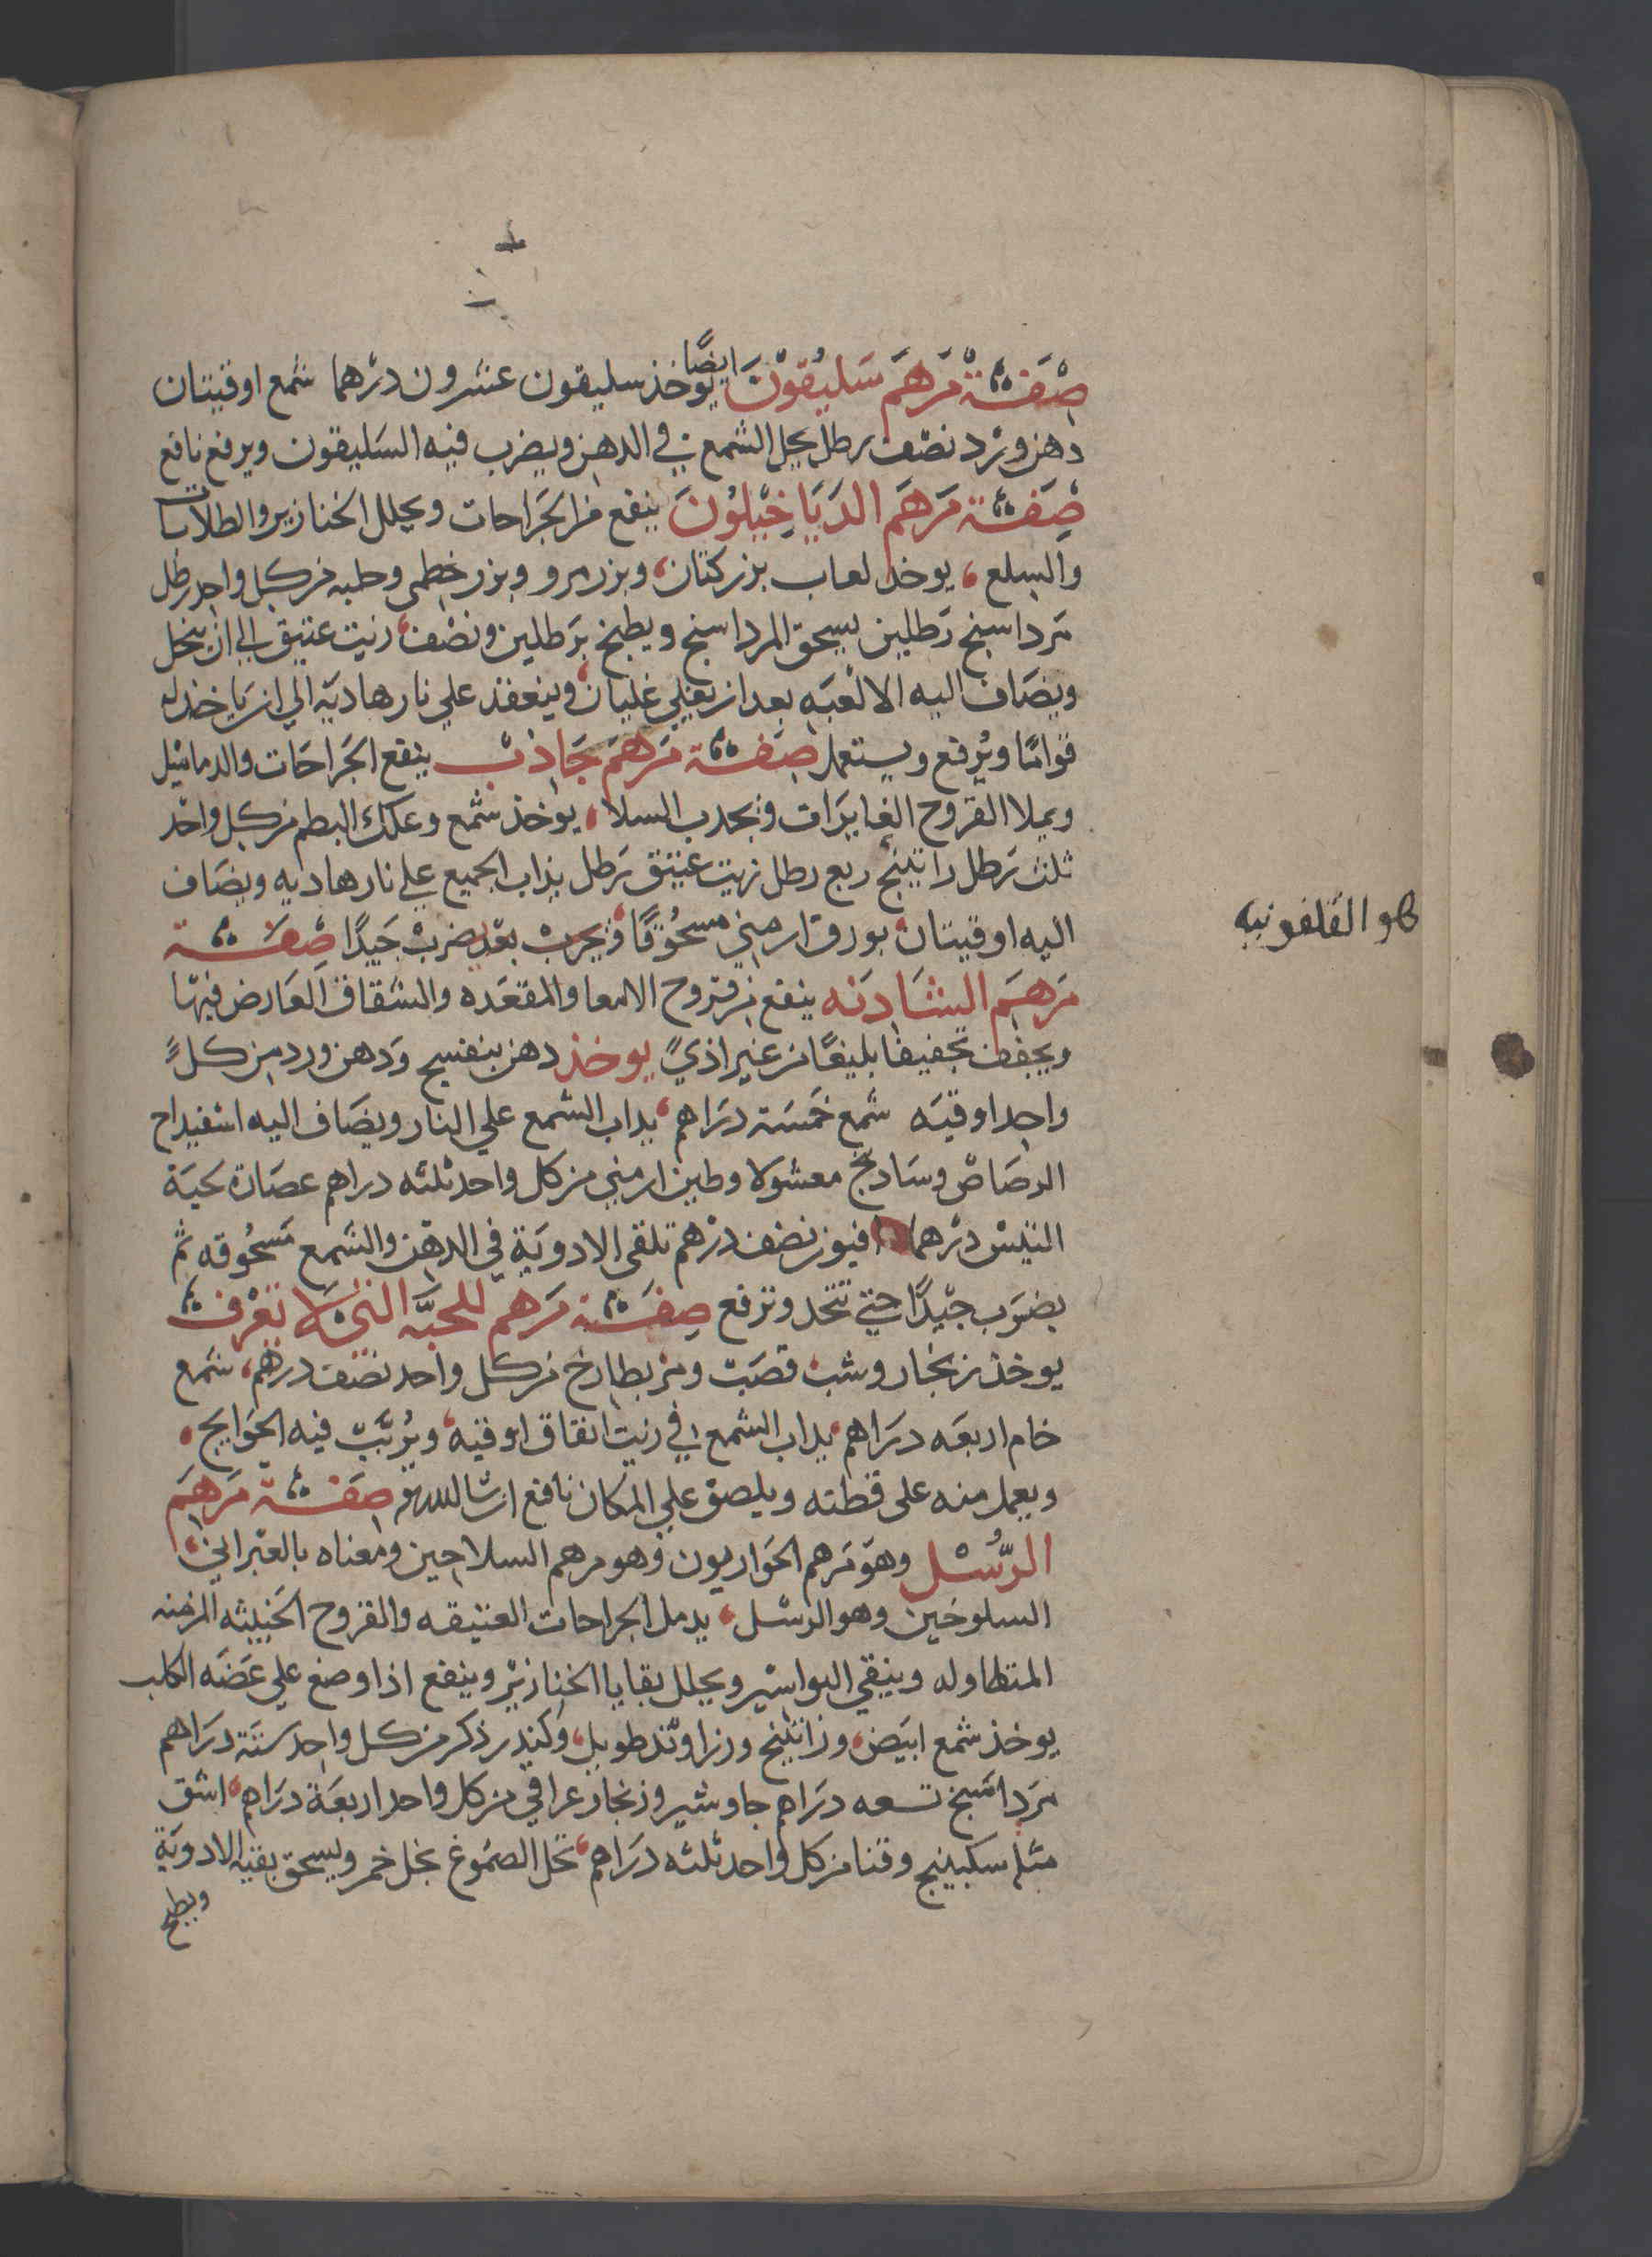 صفة مرهم سليقون ايضًا يوخذ سليقون عشرون درهما شمع اوقيتان
دهن ورد نصف رطل يحل الشمع في الدهن ويضرب فيه السليقون ويرفع نافع
صفة مرهم الدياخيلون ينفع من الجراحات ويحلل الخنازير والطلاسا
والسلع يوخذ لعاب بزركتان وبزر مرو وبزر خطمي وحلبه من كل واحد رطل
مرداسنج رطلين يسحق المرداسنج ويطبخ برطلين ونصف زيت عتيق الي ان ينحل
ويضاف اليه الالعبه بعد ان يغلي غليان وينعقد علي نار هاديه الي ان ياخذ له
قوامًا ويرفع ويستعمل صفة مرهم جاذب ينفع الجراحات والدماميل
ويملا القروح الغايرات ويجدب السلا يوخذ شمع وعلك البطم من كل واحد
ثلث رطل راتينج ربع رطل زيت عتيق رطل يذاب الجميع علي نار هاديه ويضاف
هو القلفونيه
اليه اوقيتان بورق ارمني مسحوقًا ويضرب جيدًا صفة
مرهم الشادنه ينفع من قروح الامعا والمقعده والشقاق العارض فيها
ويجفف تجفيفا بليغًا من غير اذي يوخذ دهن بنفسج ودهن ورد من كل
واحد اوقيه شمع خمسة دراهم يداب الشمع علي النار ويضاف اليه اسفيداج
الرصاص وسادنج مغسولا وطين ارمني من كل واحد ثلثه دراهم عصارة لحية
التيس درهما افيون نصف درهم تلقي الادوية في الدهن والشمع مسحوقه ثم
يضرب جيدًا حتي تتحد وترفع صفة مرهم للحبه التي لا تعرف
يوخذ زنجار وشب قصب ومر بطارخ من كل واحد نصف درهم شمع
خام اربعه دراهم يداب الشمع في زيت انفاق اوقيه ويرتب فيه الحوايج
ويعمل منه علي قطنه ويلصق علي المكان نافع ان شا الله صفة مرهم
الرسل وهو مرهم الحواريون وهو مرهم السلاحين ومعناه بالعبراني
السلوخين وهو الرسل يدمل الجراحات العتيقه والقروح الخبيثه المزمنه
المتطاوله وينقي البواسير ويحلل بقايا الخنازير وينفع اذا وضع علي عضه الكلب
يوخذ شمع ابيض وراتينج وزراوند طويل وكندر ذكر من كل واحد ستة دراهم
مرداسنج تسعه دراهم جاوشير وزنجار عراقي من كل واحد اربعة دراهم اشق
مثله سكبينج وقنا من كل واحد ثلثه دراهم تحل الصموغ بخل خمر ويسحق بقية الادوية
ويطبخ